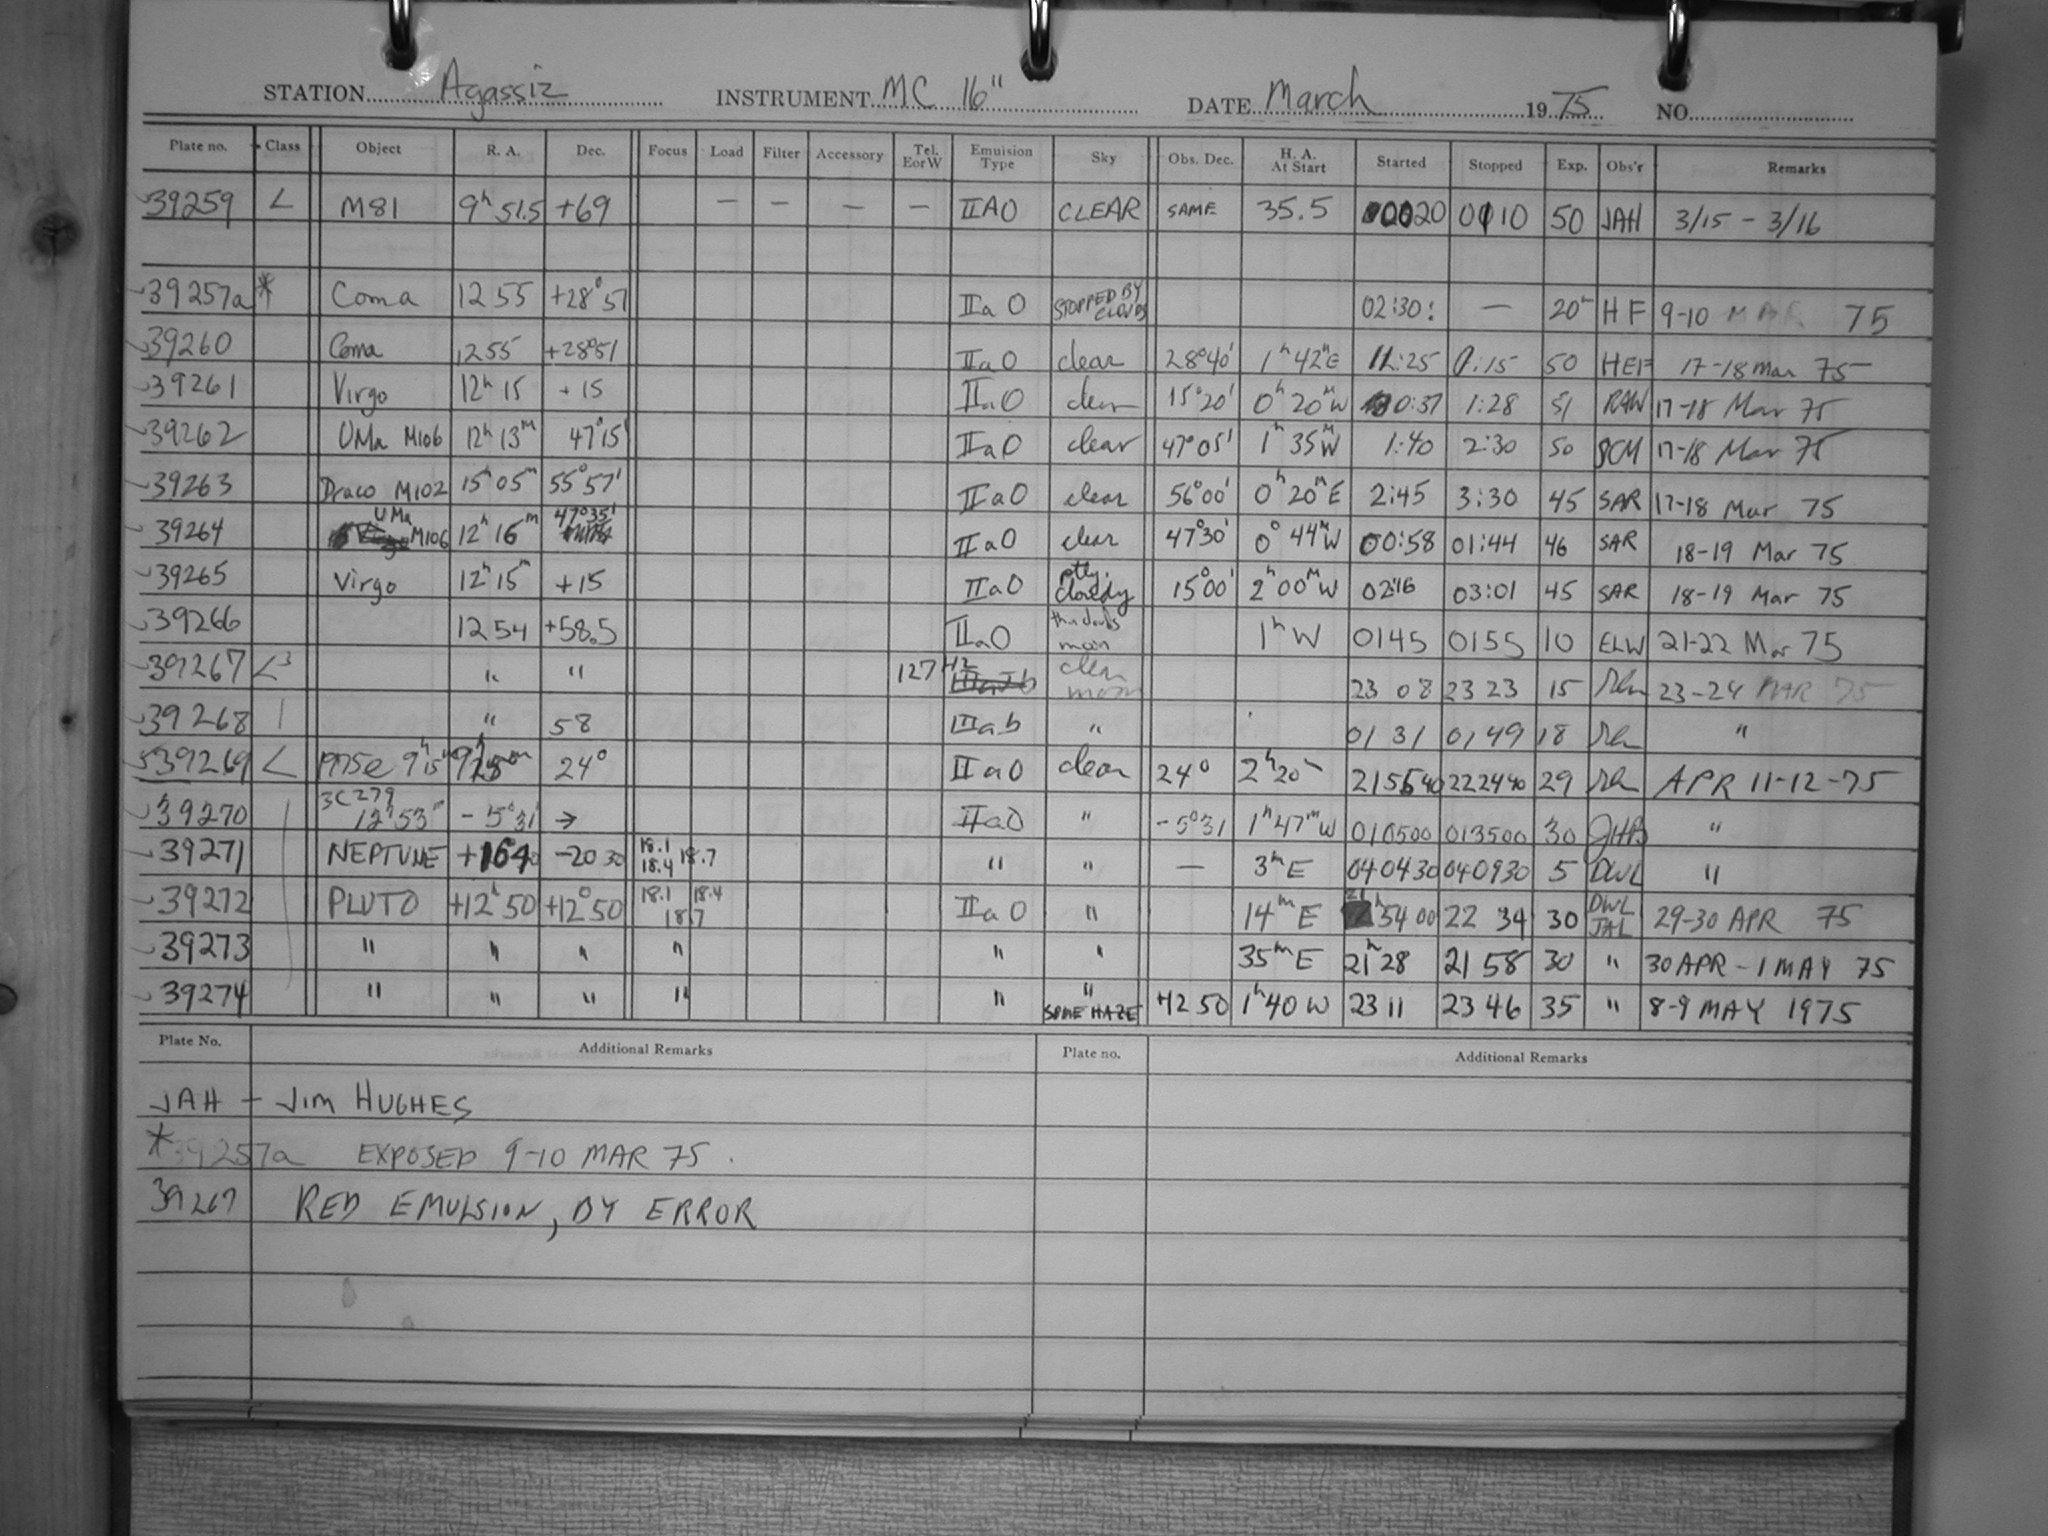 STATION Agassiz INSTRUMENT MC 16" DATE March 1975 NO.
Plate no. Class Object R. A. Dec. Focus Load Filter Accessory Tel. E or W Emulsion Type Sky Obs. Dec. H. A. At Start Started Stopped Exp. Obs'r Remarks
39259 L M81 9h 51.5 +69 — — — — IIAO CLEAR SAME 35.5 0020 0110 50 JAH 3/15 - 3/16
39257a * Coma 12 55 +28°51 IIaO STOPPED BY CLOUDS 02:30: — 20m HF 9-10 MAR 75
39260 Coma 1255 +28°51 IIaO clear 28°40' 1h 42mE 11:25 0:15 50 HEF 17-18 Mar 75
39261 Virgo 12h 15 +15 IIaO clear 15°20' 0h 20mW 0:37 1:28 51 RAW 17-18 Mar 75
39262 UMa M106 12h 13m 47°15' IIaO clear 47°05' 1h 35mW 1:40 2:30 50 SCM 17-18 Mar 75
39263 Draco M102 15h 05m 55°57' IIaO clear 56°00' 0h 20mE 2:45 3:30 45 SAR 17-18 Mar 75
39264 UMa M106 12h 16m 47°35' IIaO clear 47°30' 0° 44mW 00:58 01:44 46 SAR 18-19 Mar 75
39265 Virgo 12h 15m +15 IIaO ptly. cloudy 15°00' 2h 00mW 02:16 03:01 45 SAR 18-19 Mar 75
39266 12 54 +58.5 IIaO thin clouds moon 1h W 0145 0155 10 ELW 21-22 Mar 75
39267 L3 " " 127 H2 clear moon 23 08 23 23 15 23-24 MAR 75
39268 | " 58 IIab " 01 31 01 49 18 "
39269 L 9h 15 9h 28m 24° IIaO clear 24° 2h 20m 215540 222440 29 APR 11-12-75
39270 3C279 12h 53m - 5°31' → IIaO " -5°31 1h 47m W 010500 013500 30 JHB "
39271 NEPTUNE +1640 -20 30 18.1 18.4 18.7 " " — 3m E 040430 040930 5 DWL "
39272 PLUTO +12h 50 +12° 50 18.1 18.4 18.7 IIaO " 14m E 21h 54 00 22 34 30 DWL JAL 29-30 APR 75
39273 " " " " " " 35m E 21h 28 21 58 30 " 30 APR - 1 MAY 75
39274 " " " " " " SOME HAZE +12 50 1h 40 W 23 11 23 46 35 " 8-9 MAY 1975
Plate No. Additional Remarks Plate no. Additional Remarks
JAH - JIM HUGHES
*39257a EXPOSED 9-10 MAR 75.
39267 RED EMULSION, BY ERROR